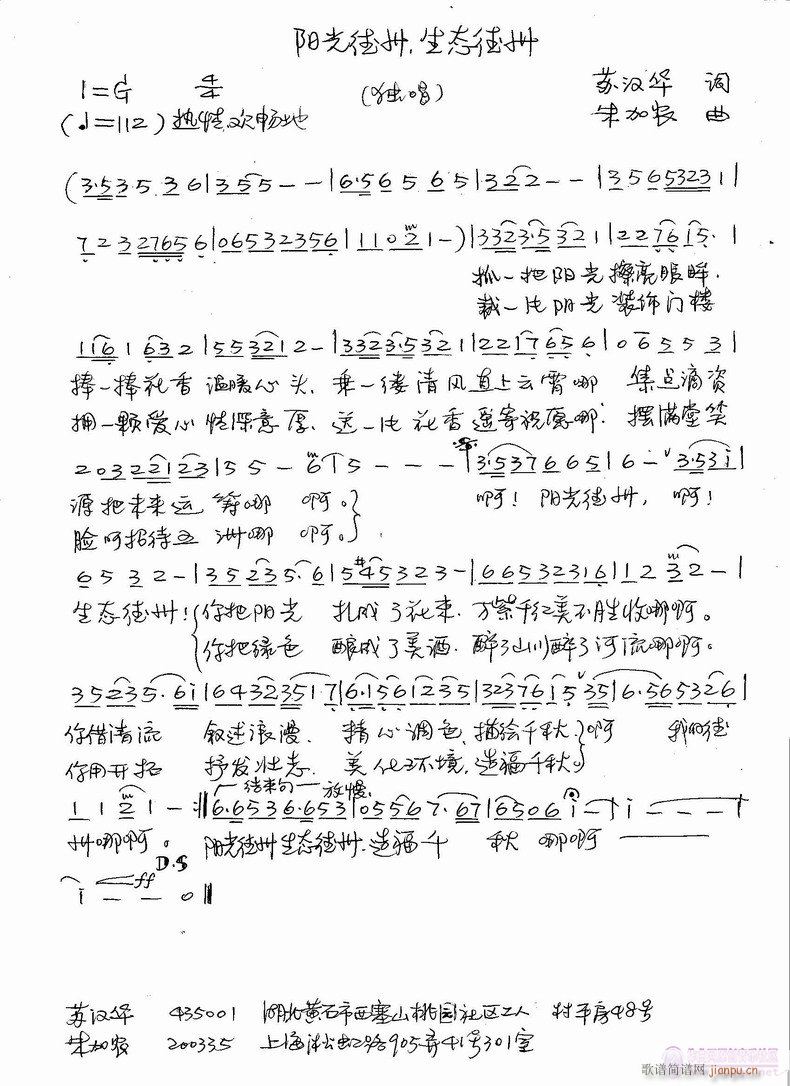 阳光徳州,生态徳州
1=G 4/4 (独唱) 苏汉华 词
(♩=112) 热情欢畅地 朱加农 曲
(3·535 36|355--|6·56565|322--|356532 31|
7232765 6|06532356|1102 1-)|3323·5321|22761 5·|
抓一把阳光擦亮眼眸,
裁一片阳光装饰门楼
1161 632|553212-|3323·5321|2217656|06553|
捧一捧花香温暖心头, 乘一缕清风直上云霄哪 集点滴资
拥一颗爱心情深意厚, 送一片花香遥寄祝愿哪· 摆满堂笑
203221 23|55-6 1|5---|3·537665|6-3·53i|
源把未来运筹哪 啊。 啊! 阳光徳州, 啊!
脸呵招待五洲哪 啊。
6532-|35235·6|5#45323-|66532316|1232-|
生态徳州! 你把阳光 扎成了花束· 万紫千红美不胜收哪啊。
你把绿色 酿成了美酒· 醉了山川醉了河流哪啊。
35235·6i|643235 17|6·1561235|32376 1535|6·565326|
你借清流 叙述浪漫、 精心调色,描绘千秋, 啊 我的徳
你用开拓 抒发壮志· 美化了环境,造福千秋。
结束句 放慢
1121-|6·6536·653|05567·67|6506i-|i---|
州哪啊。 阳光徳州生态徳州,造福千 秋 哪啊
D.S
i--0|| ff
苏汉华 435001 湖北黄石市西塞山桃园社区工人 村平房48号
朱加农 200335 上海淞虹路905弄41号301室
歌谱简谱网 jianpu.cn